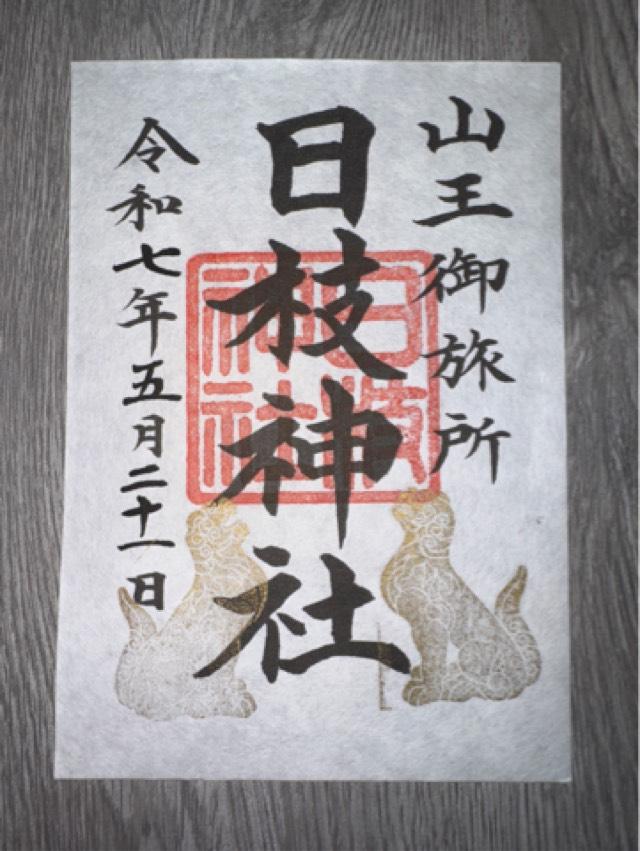 山王御旅所
日枝神社
日枝神社
令和七年五月二十一日